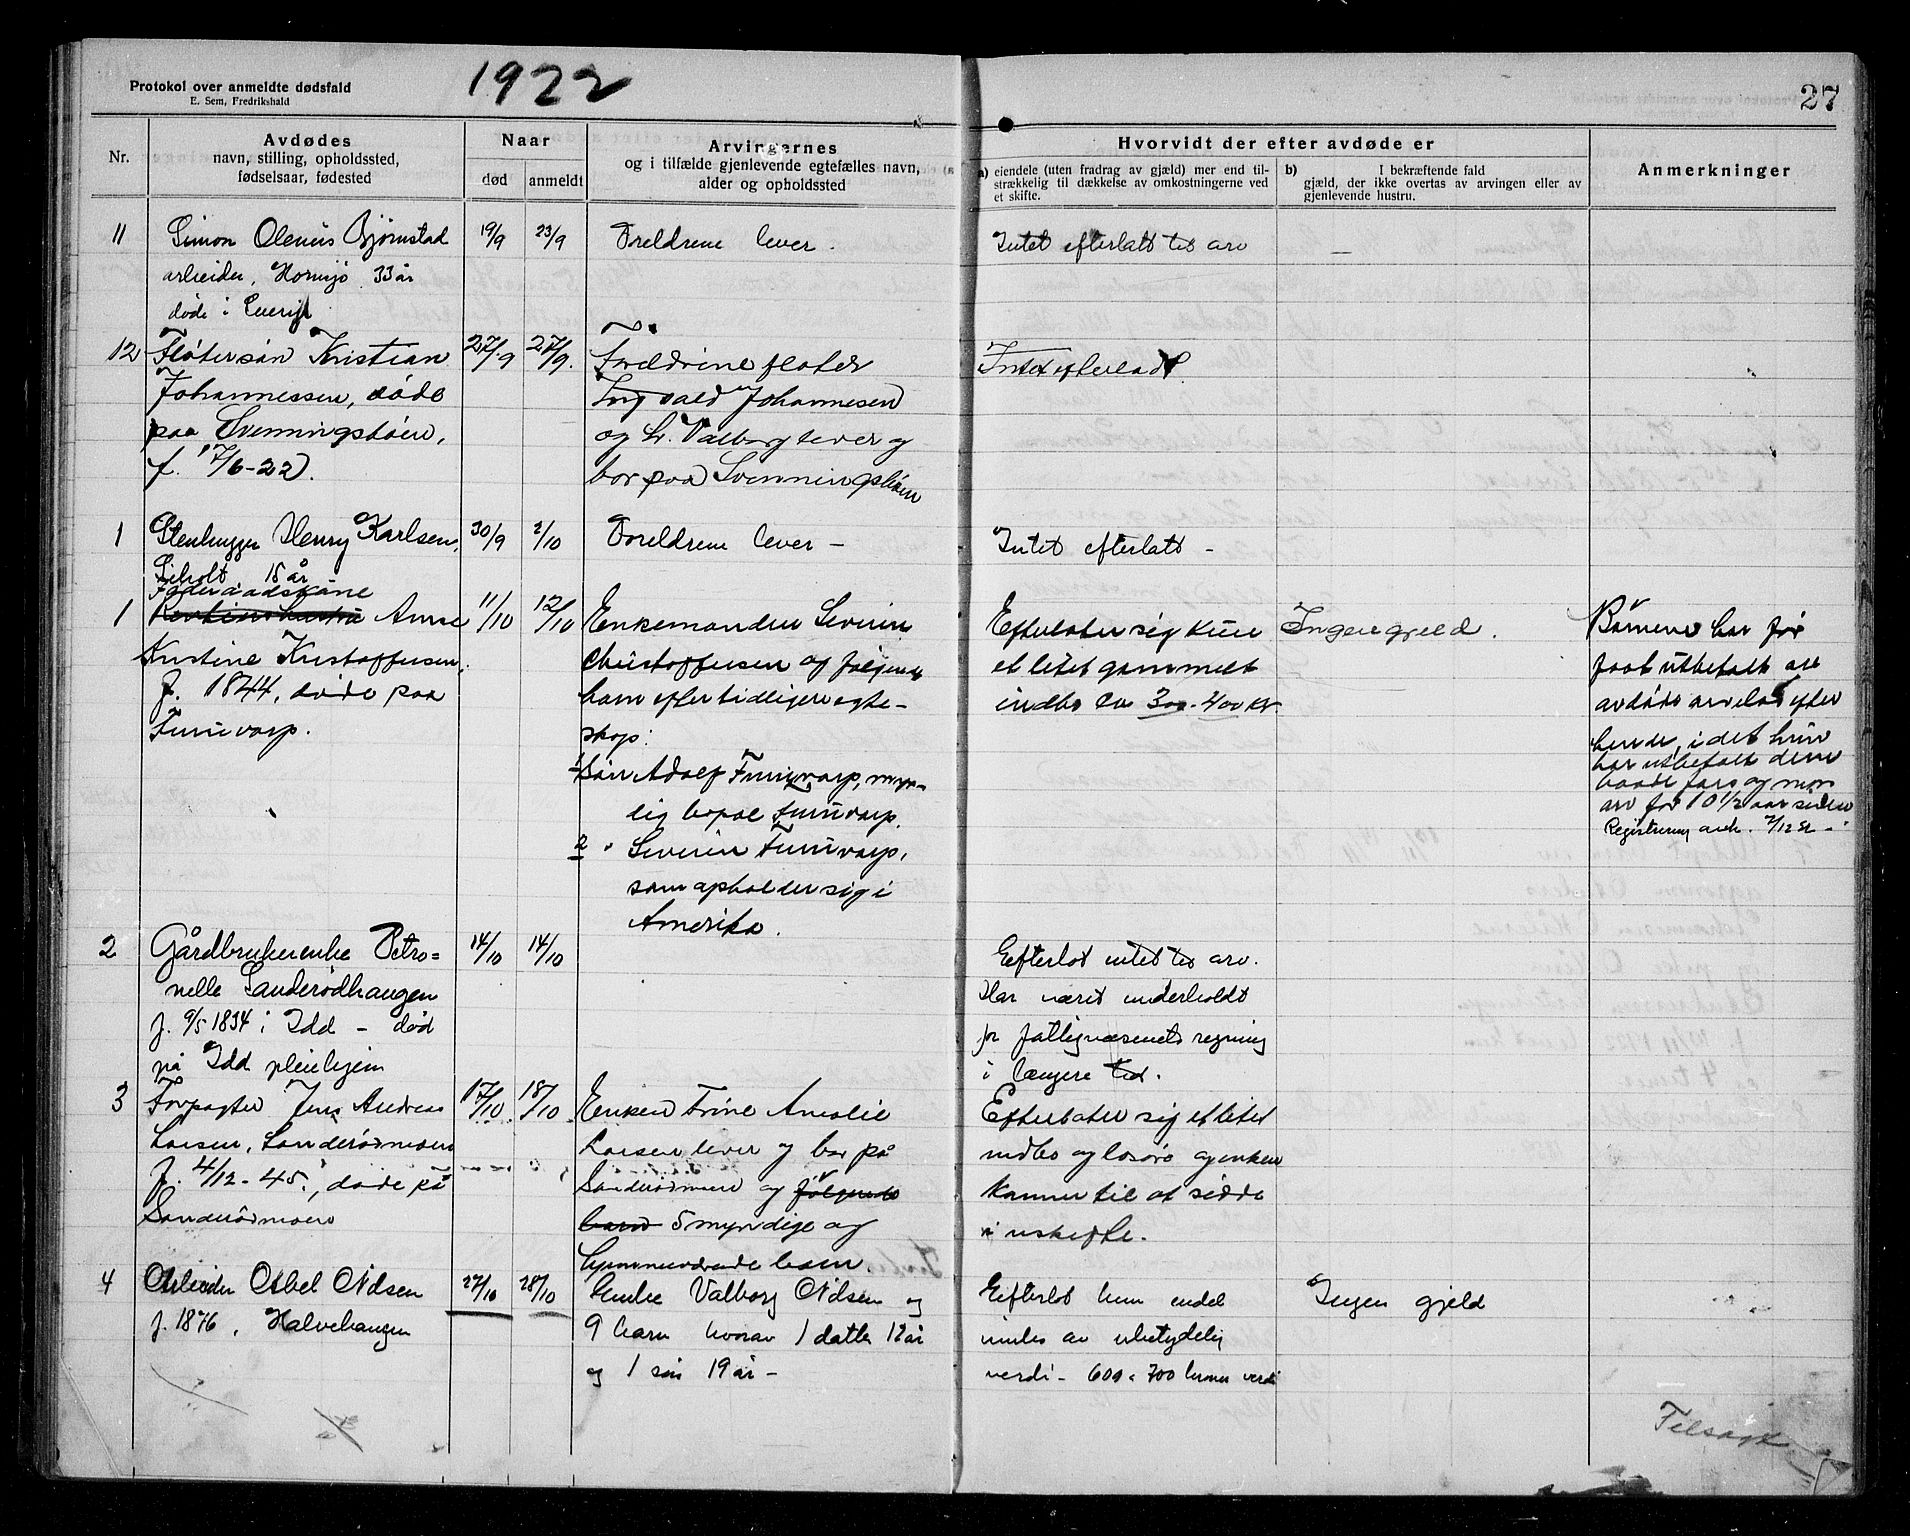 1922
27
Protokol over anmeldte dødsfald
E. Sem, Fredrikshald
Nr.
Avdødes
navn, stilling, opholdssted,
fødselsaar, fødested
Naar
død
anmeldt
Arvingernes
og i tilfælde gjenlevende egtefælles navn,
alder og opholdssted
Hvorvidt der efter avdøde er
a) eiendele (uten fradrag av gjæld) mer end til-
strækkelig til dækkelse av omkostningerne ved
et skifte.
b) I bekræftende fald
gjæld, der ikke overtas av arvingen eller av
gjenlevende hustru.
Anmerkninger
11
Simon Olenius Bjørnstad
arbeider, Hornsjø 33 år
døde i
19/9
23/9
Foreldrene lever.
Intet efterlatt til arv
—
12
Fløtersøn Kristian
Johannessen, døde
paa Svenningsbøen,
f. 17/6-22.
27/9
27/9.
Foreldrene fløter
Ingvald Johannesen
og h. Valborg lever og
bor paa Svenningsbøen
Intet efterladt.
1
Stenhugger Henry Karlsen,
Liholt 15 år
30/9
2/10
Foreldrene lever –
Intet efterlatt –
1
Føderaadskone
Anne
Kristine Kristoffersen,
f. 1844, døde paa
Furuvarp.
11/10
12/10
Enkemanden Severin
Christoffersen og følgende
barn efter tidligere egte-
skap:
1 Søn Adolf Furuvarp, myn-
dig bopæl Furuvarp.
2 " Severin Furuvarp,
som opholder sig i
Amerika.
Efterlater sig kun
et litet gammelt
indbo ca 300-400 kr.
Ingen gjeld.
Børnene har før
faat utbetalt
avdøde arvelod efter
hende, idet hun
har utbetalt dem
baade fars og mors
arv for 10 1/2 aar siden
Registrering 7/12
2
Gårdbrukerenke Petro=
nelle Sanderødhaugen
f. 9/5 1834 i Idd – død
på Idd pleiehjem
14/10
14/10
Efterlot intet til arv.
Har været underholdt
for fattigvæsenets regning
i længere tid.
3
Forpagter Jens Andreas
Larsen, Sanderødmoen
f. 4/12-45., døde på
Sanderødmoen
17/10
18/10
Enken Trine Amalie
Larsen lever og bor på
Sanderødmoen og følgende
barn 5 myndige og
hjemmeværende barn.
Efterlater sig et litet
indbo og løsøre og enken
kommer til at sidde
i uskifte.
4
Arbeider Abel Nilsen
f. 1876, Halvehaugen
27/10
28/10
Enke Valborg Nilsen og
9 barn hvorav 1 datter 12 år
og 1 søn 19 år –
Efterlot kun endel
indbo av ubetydelig
verdi – 600 a 700 kroner verdi
Ingen gjeld